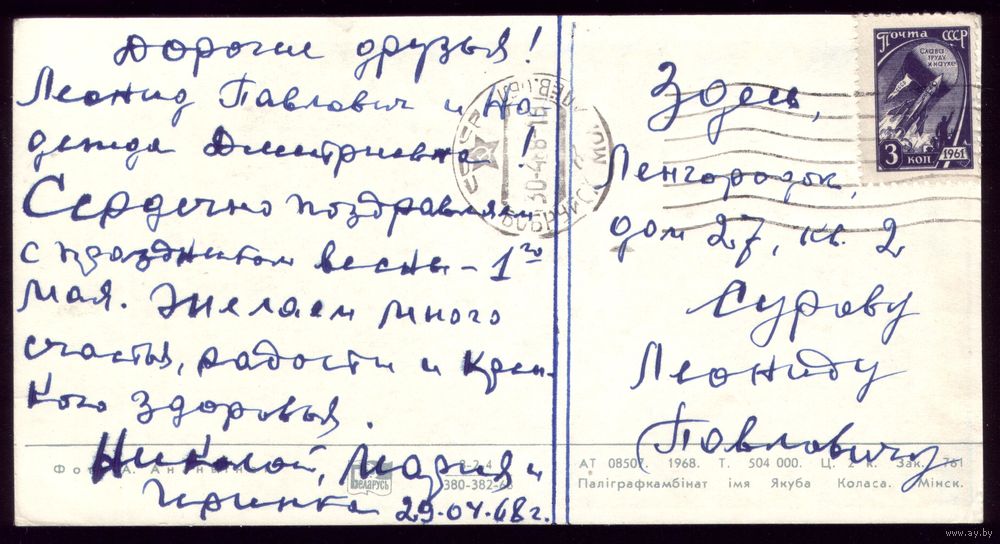 Дорогие друзья!
Леонид Павлович и На
дежда Дмитриевна!
Сердечно поздравляем
с праздником весны – 1го
Мая. Желаем много
счастья, радости и креп-
кого здоровья.
Николай, Мария и
Иринка 29.04.68г.
Фото А.
Беларусь
8-2-4
380-382-68
СССР
30-4-68-16
БОБРУЙСК МОГ
ПОЧТА СССР
СЛАВА
ТРУДУ
И НАУКЕ
3 КОП 1961
Здесь,
Ленгородок,
дом 27, кв. 2
Сурову
Леониду
Павловичу
АТ 08507. 1968. Т. 504 000. Ц. 2 к. Зак. 761
Паліграфкамбінат імя Якуба Коласа. Мінск.
www.ay.by